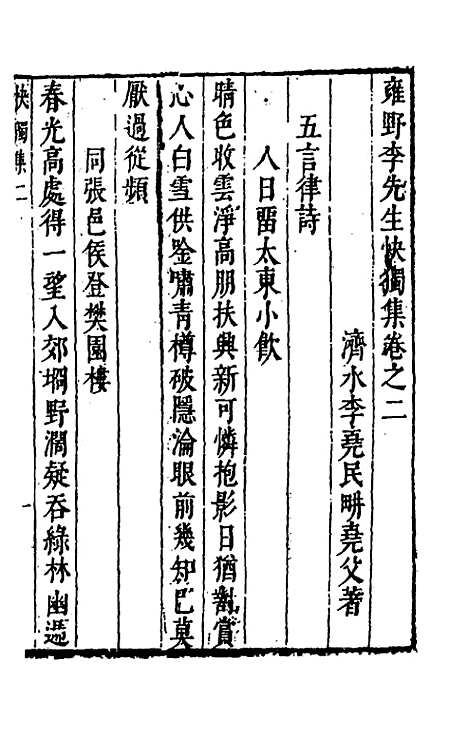 雍野李先生快獨集卷之二
濟水李堯民畊堯父著
五言律詩
人日畱太東小飲
晴色收雲淨高朋扶興新可憐抱影日猶對賞
心人白雪供唫嘯青樽破隱淪眼前幾知己莫
厭過從頻
同張邑侯登樊園樓
春光高處得一望入郊坰野濶疑吞綠林幽遞
快獨集二
一